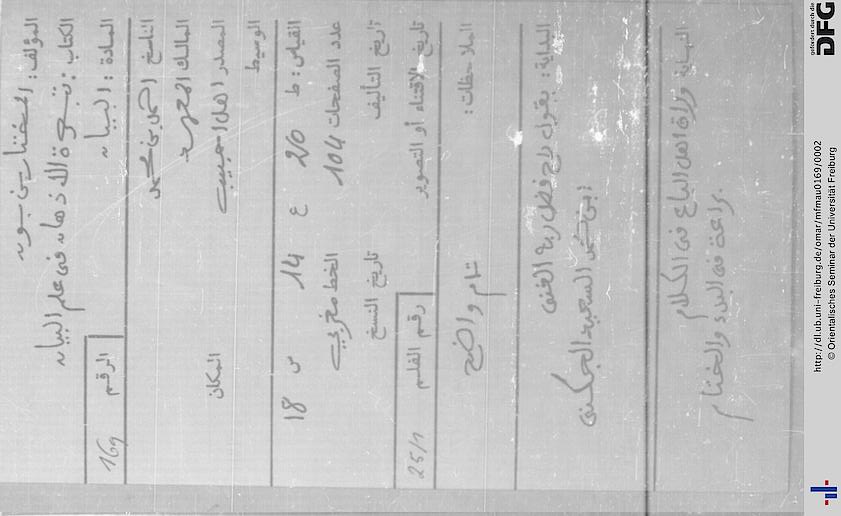 المؤلف: المختار بن بونه
الكتاب: تبصرة الأذهان في علم البيان
المادة: البيان
الرقم 169
الناسخ
المالك
المصدر اهل احبيب
المكان
الوسيط
القياس: ط 20 ع 14 س 18
عدد الصفحات 104 الخط مغربي
تاريخ التأليف تاريخ النسخ
تاريخ الاقتناء أو التصوير رقم الفلم 25/1
الملاحظات: تام واضح
البداية: يقول راج فضل ربه الغني
ابن محمد السعيد الجكني
النهاية في الكلام
براعة في البدء والختام
gefördert durch die
DFG
http://dl.ub.uni-freiburg.de/omar/mfmau0169/0002
© Orientalisches Seminar der Universität Freiburg